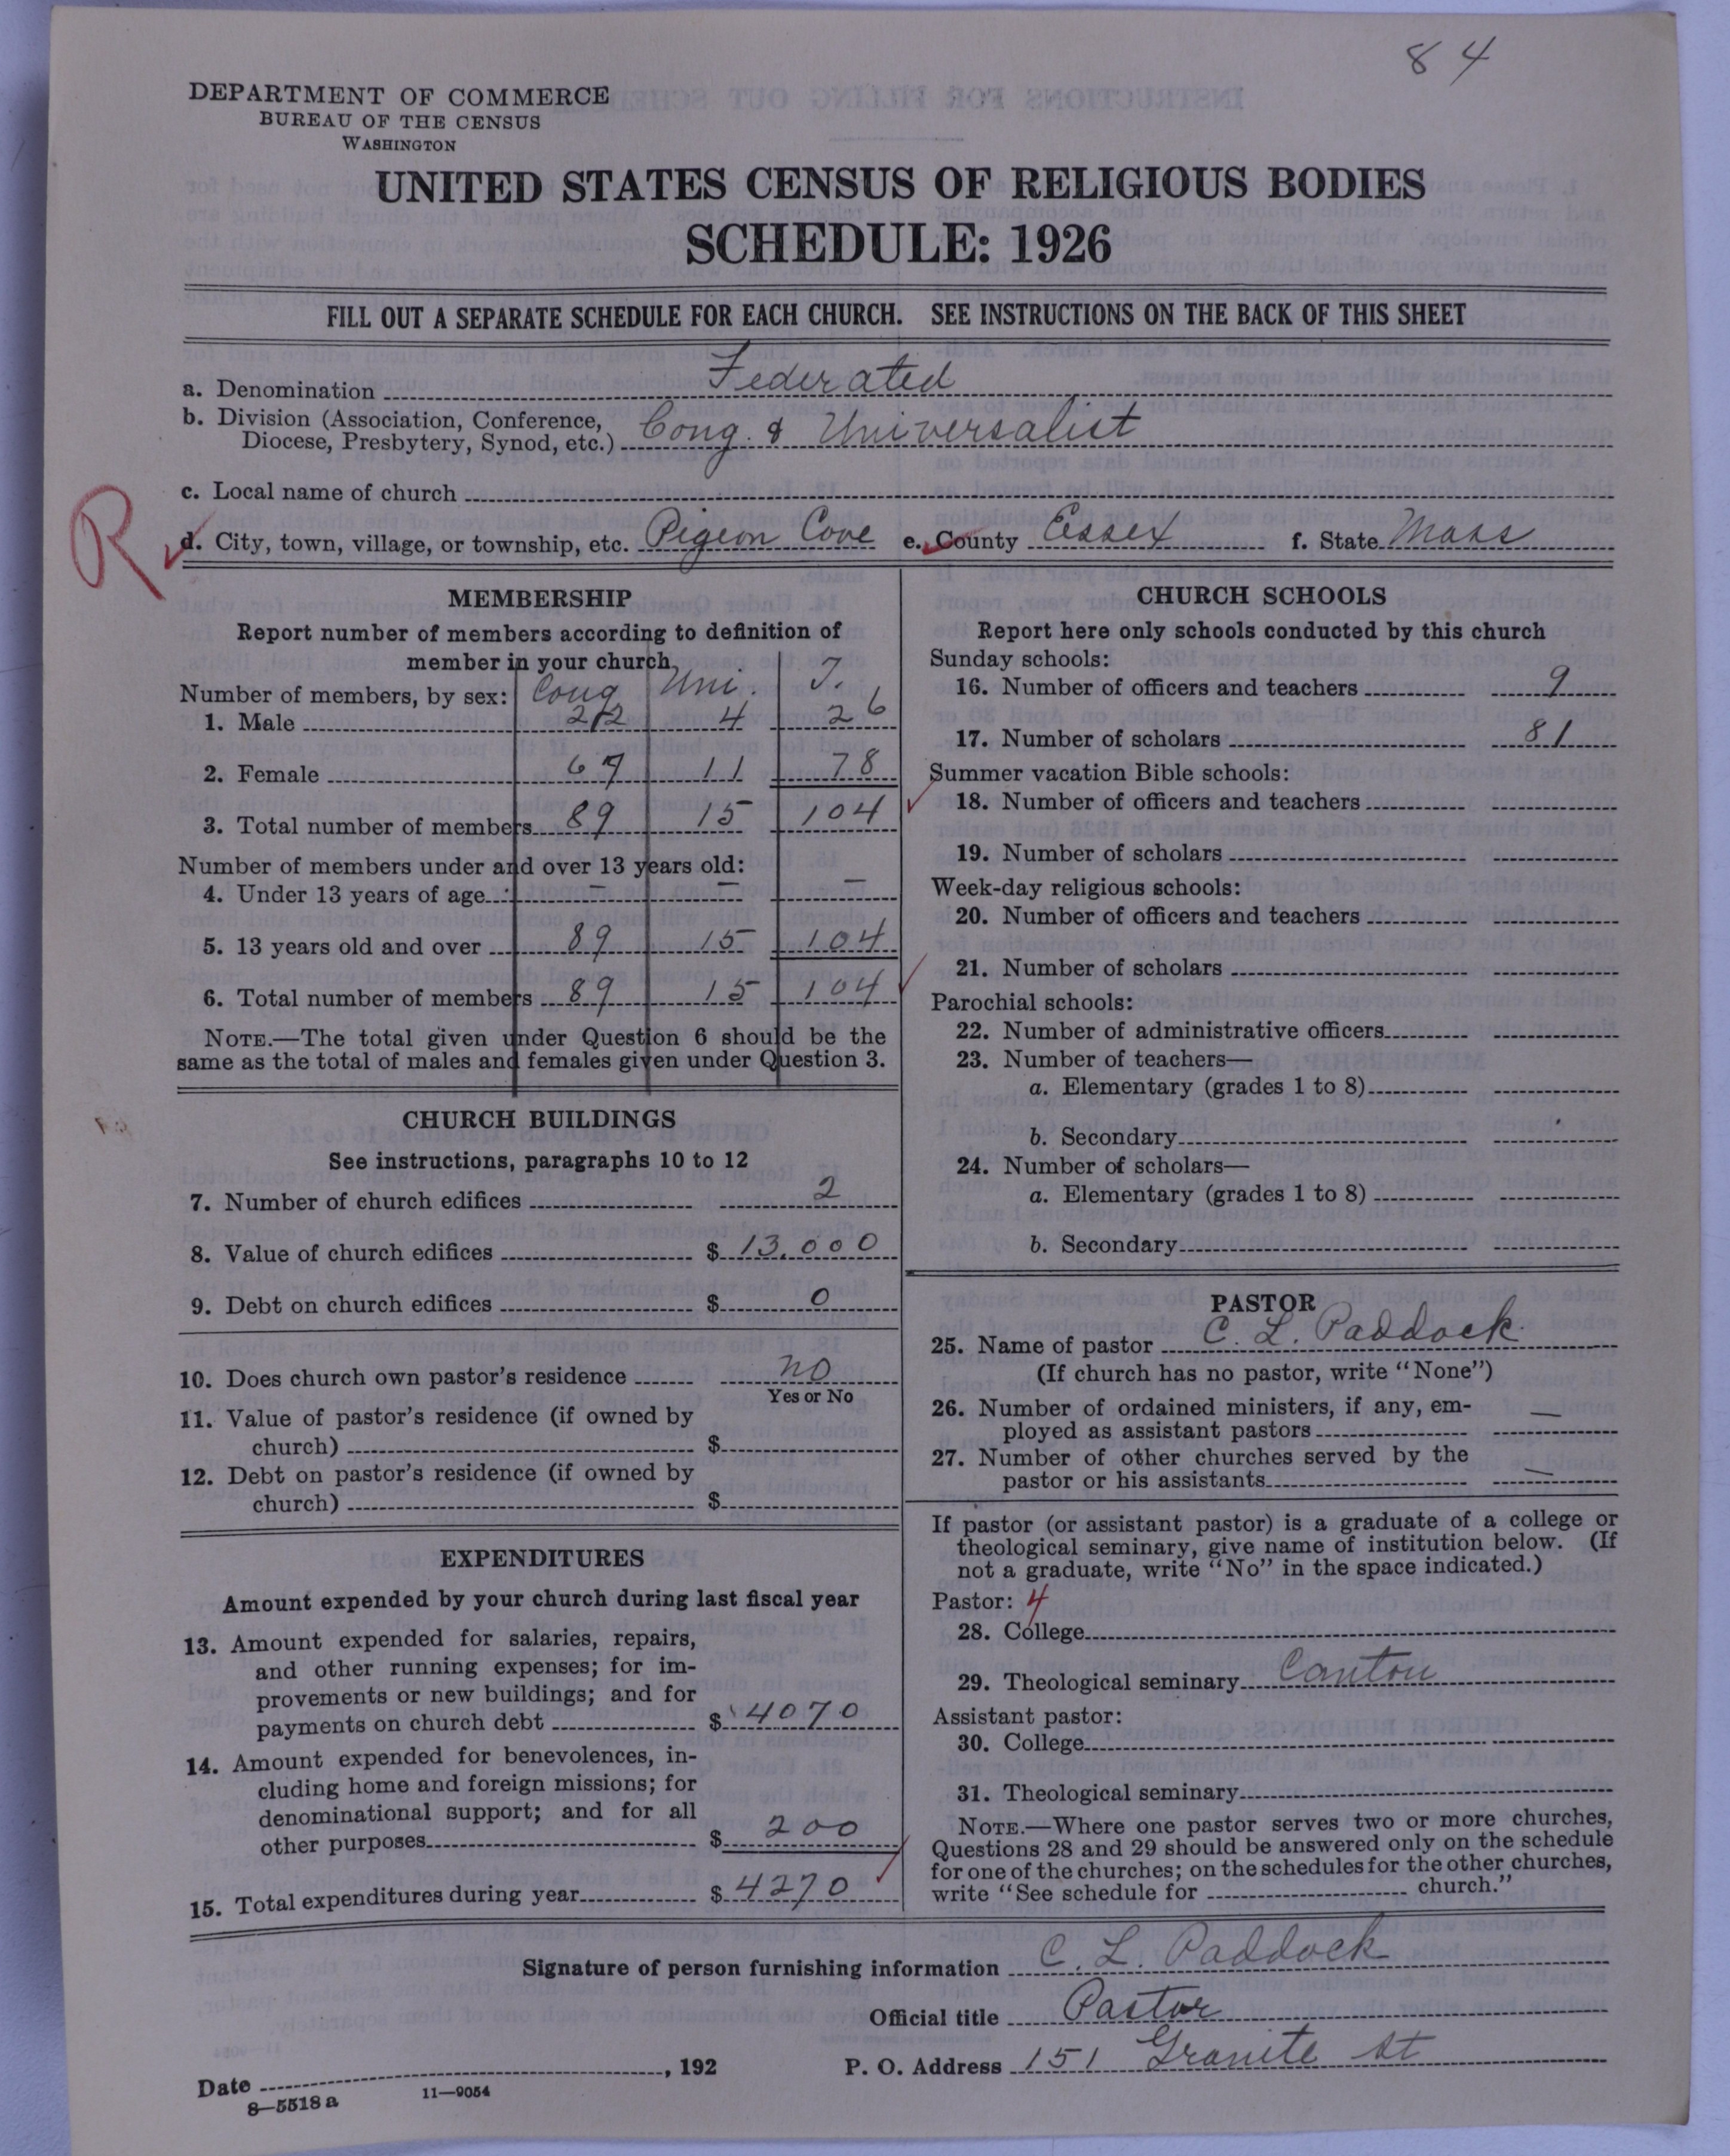 84
DEPARTMENT OF COMMERCE
BUREAU OF THE CENSUS
WASHINGTON
UNITED STATES CENSUS OF RELIGIOUS BODIES
SCHEDULE: 1926
FILL OUT A SEPARATE SCHEDULE FOR EACH CHURCH. SEE INSTRUCTIONS ON THE BACK OF THIS SHEET
a. Denomination Federated
b. Division (Association, Conference,
Diocese, Presbytery, Synod, etc.) Cong. & Universalist
c. Local name of church
R
d. City, town, village, or township, etc. Pigeon Cove e. County Essex f. State Mass
MEMBERSHIP
Report number of members according to definition of
member in your church
Number of members, by sex: Cong Uni. T.
1. Male 22 4 26
2. Female 67 11 78
3. Total number of members 89 15 104
Number of members under and over 13 years old:
4. Under 13 years of age — — —
5. 13 years old and over 89 15 104
6. Total number of members 89 15 104
NOTE.—The total given under Question 6 should be the
same as the total of males and females given under Question 3.
CHURCH BUILDINGS
See instructions, paragraphs 10 to 12
7. Number of church edifices 2
8. Value of church edifices $ 13,000
9. Debt on church edifices $ 0
10. Does church own pastor's residence no
Yes or No
11. Value of pastor's residence (if owned by
church) $
12. Debt on pastor's residence (if owned by
church) $
EXPENDITURES
Amount expended by your church during last fiscal year
13. Amount expended for salaries, repairs,
and other running expenses; for im-
provements or new buildings; and for
payments on church debt $ 4070
14. Amount expended for benevolences, in-
cluding home and foreign missions; for
denominational support; and for all
other purposes $ 200
15. Total expenditures during year $ 4270
CHURCH SCHOOLS
Report here only schools conducted by this church
Sunday schools:
16. Number of officers and teachers 9
17. Number of scholars 81
Summer vacation Bible schools:
18. Number of officers and teachers
19. Number of scholars
Week-day religious schools:
20. Number of officers and teachers
21. Number of scholars
Parochial schools:
22. Number of administrative officers
23. Number of teachers—
a. Elementary (grades 1 to 8)
b. Secondary
24. Number of scholars—
a. Elementary (grades 1 to 8)
b. Secondary
PASTOR
25. Name of pastor C. L. Paddock
(If church has no pastor, write "None")
26. Number of ordained ministers, if any, em-
ployed as assistant pastors —
27. Number of other churches served by the
pastor or his assistants —
If pastor (or assistant pastor) is a graduate of a college or
theological seminary, give name of institution below. (If
not a graduate, write "No" in the space indicated.)
Pastor: 4
28. College
29. Theological seminary Canton
Assistant pastor:
30. College
31. Theological seminary
NOTE.—Where one pastor serves two or more churches,
Questions 28 and 29 should be answered only on the schedule
for one of the churches; on the schedules for the other churches,
write "See schedule for church."
Signature of person furnishing information C. L. Paddock
Official title Pastor
Date , 192 P. O. Address 151 Granite St
8—5518 a 11—9054